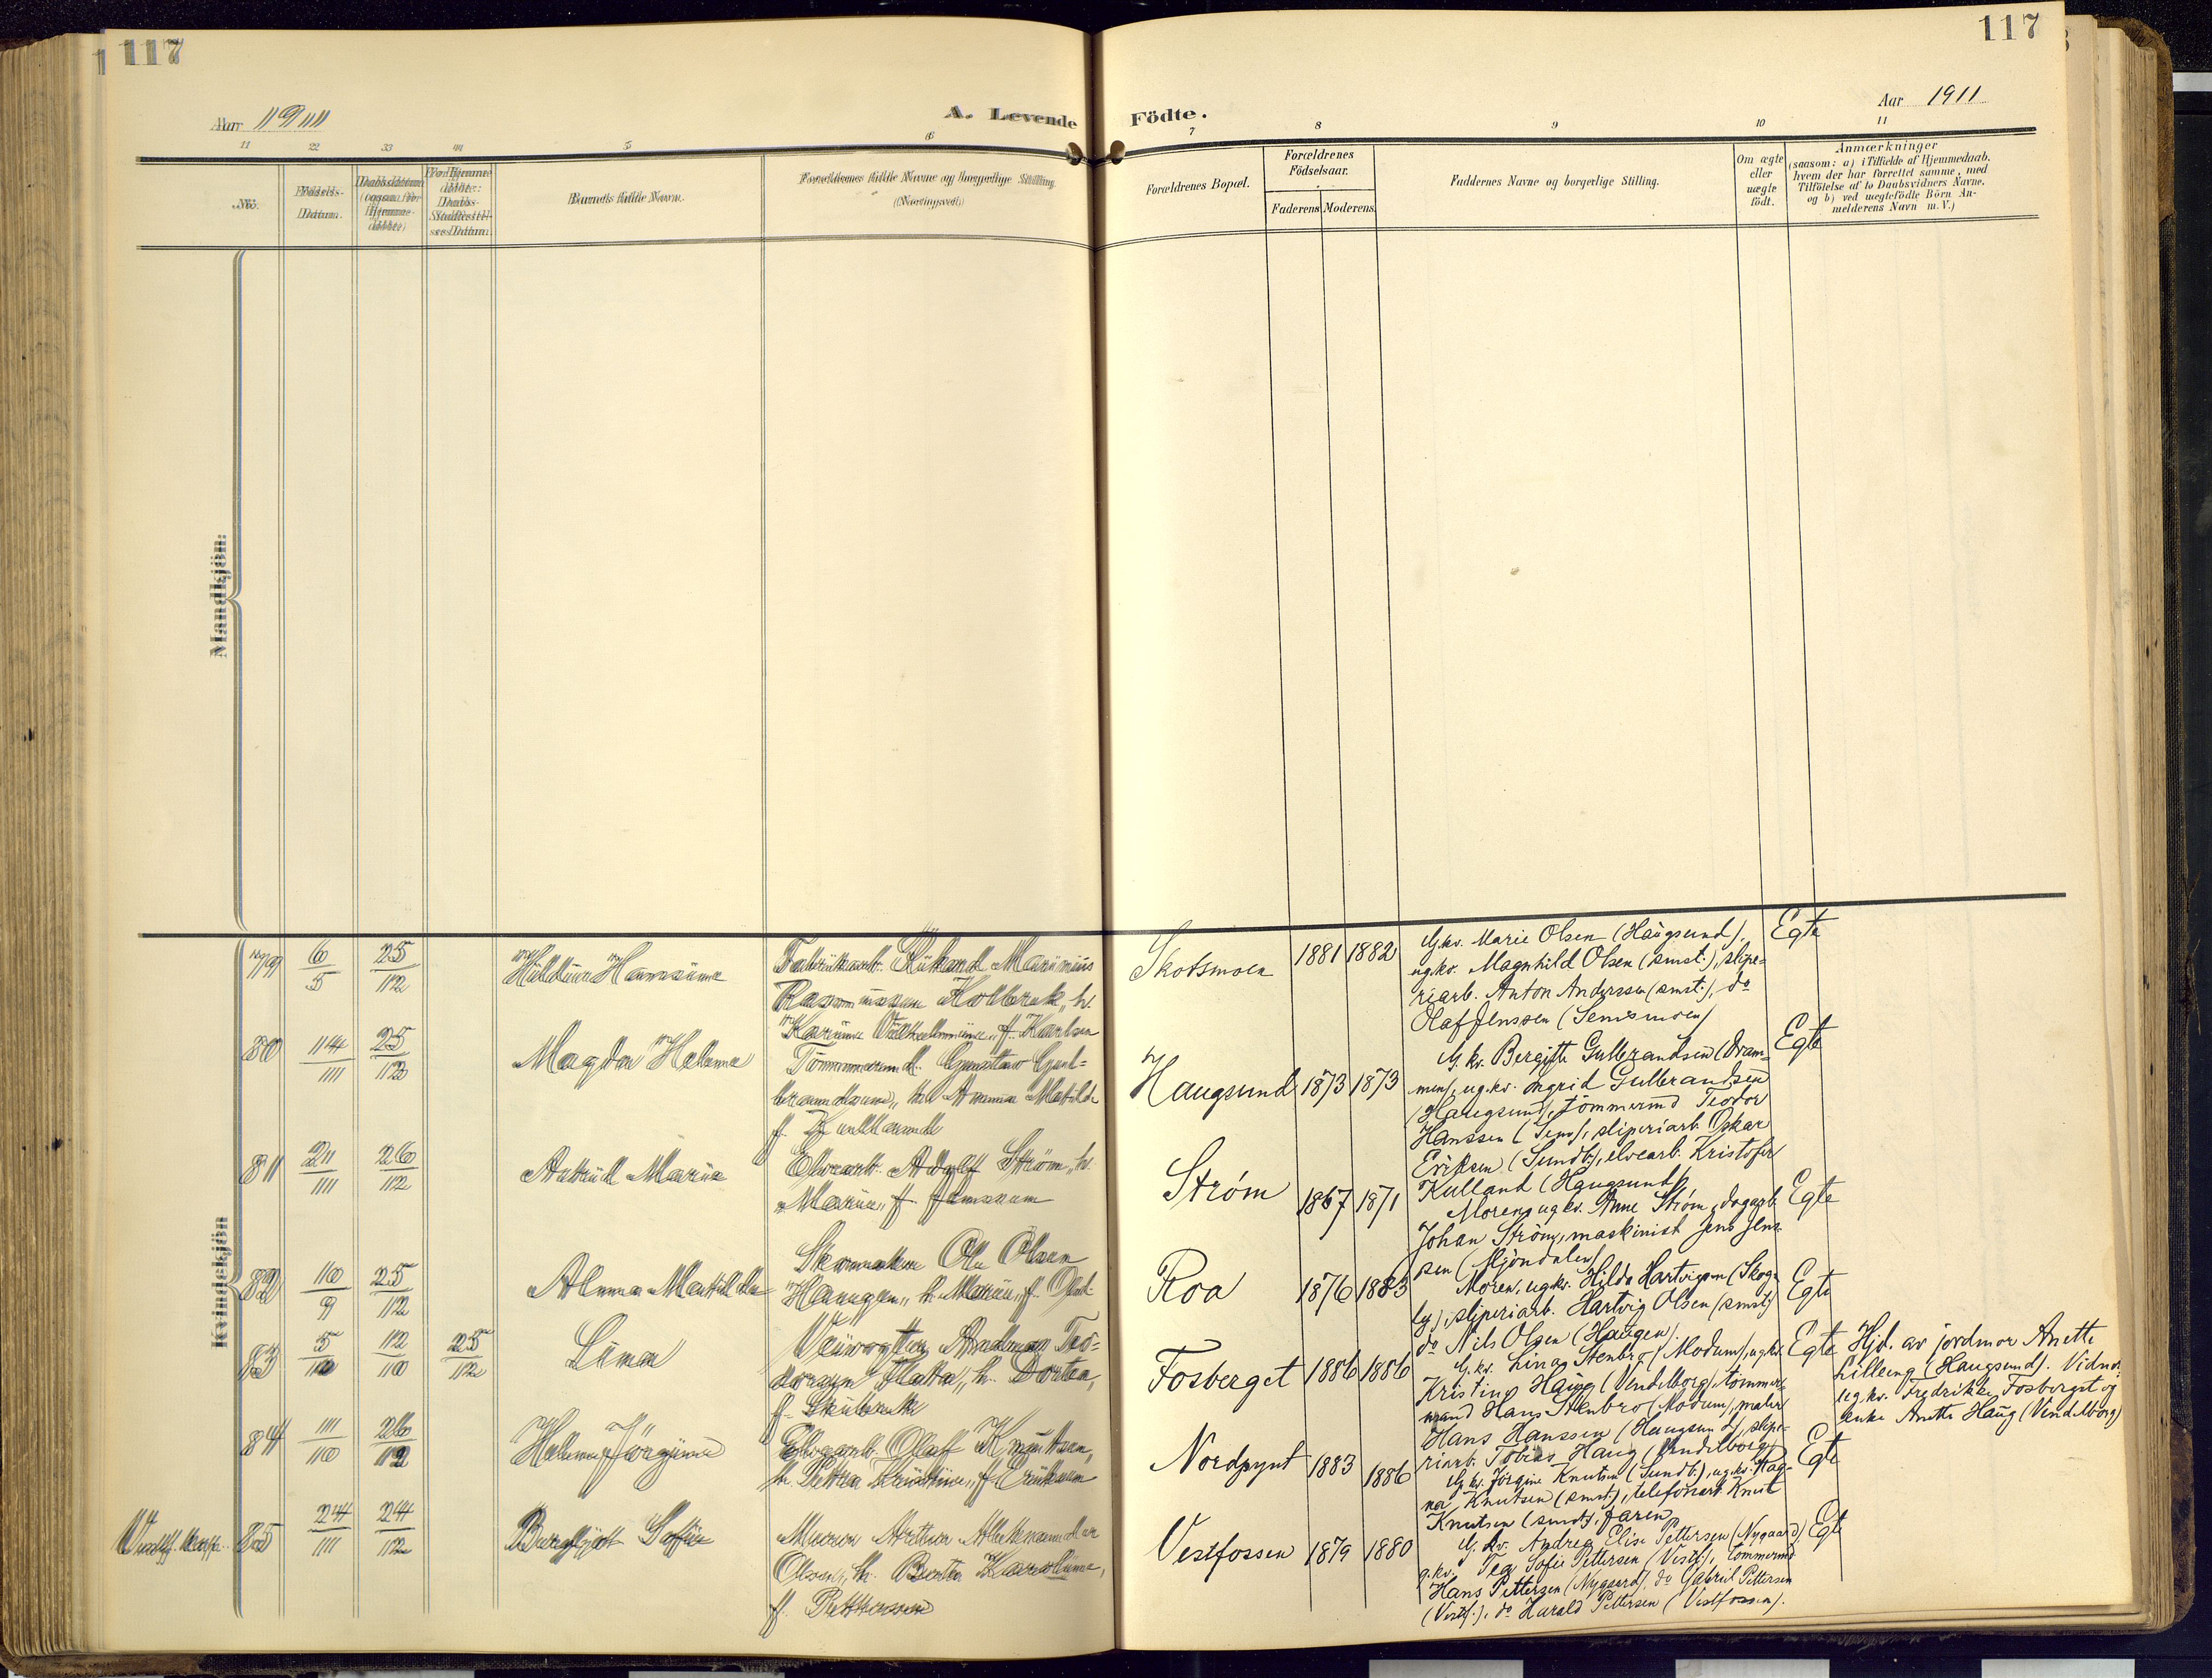 117
117
Aar 1911
A. Levende
Födte.
Aar 1911
1 2 3 4 5 6
7 8 9 10 11
No.
Fødsels-
Datum.
Barnets fulde Navn.
Forældrenes fulde Navne og borgerlige Stilling.
Forældrenes Bopæl.
Forældrenes
Födselsaar.
Faderens Moderens
Faddernes Navne og borgerlige Stilling.
Om ægte
eller
uægte
födt.
Anmærkninger
(saasom: a) i Tilfælde af Hjemmedaab,
hvem der har forrettet samme, med
Tilföielse af to Daabsvidners Navne,
og b) ved uægtefödte Börn An-
melderens Navn m. V.)
Mandkjön:
Kvindekjön
79 6/5 25/12
Fabrikarb. Rikard Marinius
Rasmussen Kolbræk, h.
f. Karlsen
Skotsmoen 1881 1882
G.kv. Marie Olsen (Haugsund),
ug.kv. Magnhild Olsen (smst.), slipe-
riarb. Anton Anderssen (smst.), do
Olaf Jenssen (Semsmoen)
Egte
80 14/11 25/12
Magda Helene
Tömmermd. Gustav Gul-
brandsen, h. Anna Matilde
f. Kulland
Haugsund 1873 1873
G.kv. Bergitte Gulbrandsen (Dram-
men), ug.kv. Ingrid Gulbrandsen
(Haugsund), tömmermd Teodor
Hanssen (Sem), sliperiarb. Oskar
Eriksen (Sundb.), elvearb. Kristofer
Kulland (Haugsund)
Egte
81 21/11 26/12
Astrid Marie
Elvearb. Adolf Strøm, h.
Marie, f. Jenssen
Strøm 1867 1871
Moren, ug.kv. Anne Strøm, dagarb.
Johan Strøm, maskinist Jens Jens-
sen (Mjøndalen)
Egte
82 10/9 25/12
Alma Matilde
Ole Olsen
Haugen, h. Marie, f.
Roa 1876 1883
Moren, ug.kv. Hilda Hartvigsen (Skog-
ly), sliperiarb. Hartvig Olsen (smst)
do Nils Olsen (Haugen).
Egte
83 5/10 12/10 25/12
Lina
Veivogter Andreas Teo-
dorsen Flata, h. Dortea,
Fosberget 1886 1886
G.kv. Lina Stenbro (Modum), ug.kv.
Kristine Haug (Vendelborg), tömmer-
mand Hans Stenbro (Modum), maler
Hans Hanssen (Haugsund), slipe-
riarb. Tobias Haug (Vendelborg)
Egte
Hjd. av jordmor Anette
Lilleeng (Haugsund). Vidner:
ug.kv. Fredrikke Fosberget og
enke Anette Haug (Vendelborg)
84 11/10 26/12
Helene Jørgine
Elvearb. Olaf Knutsen,
h. Petra Kristine, f. Eriksen
Nordgynt 1883 1886
G.kv. Jørgine Knutsen (Sundb.), ug.kv. Rag-
na Knutsen (smst.), telefonarb. Knut
Knutsen (smst.), faren
Egte
85 24/11 24/12
Bergljot Sofie
Murer Artur Aleksander
Olsen, h. Berta Karoline,
f. Pettersen
Vestfossen 1879 1880
G.kv. Andrea Elise Pettersen (Nygaard)
g.kv. Tea Sofie Pettersen (Vestf.), tömmermd
Hans Pettersen (Nygaard), do Gabriel Pettersen
(Vestf.), do Harald Pettersen (Vestfossen).
Egte